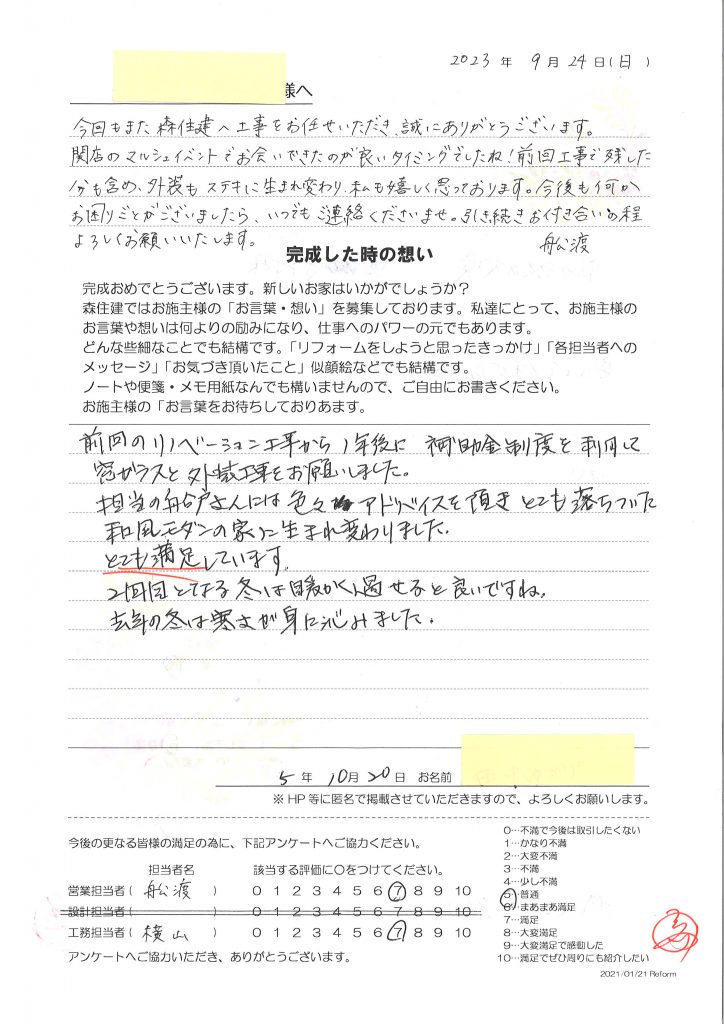 2023 年 9 月 24 日(日)
様へ
今回もまた 森住建へ工事をお任せいただき、誠にありがとうございます。
関店のマルシェイベントでお会いできたのが良いタイミングでしたね！前回工事で残した
分も含め、外装も ステキに生まれ変わり、私も嬉しく思っております。今後も何か
お困りごとがございましたら、いつでもご連絡くださいませ。引き続きお付き合いの程
よろしくお願いいたします。 舩渡
完成した時の想い
完成おめでとうございます。新しいお家はいかがでしょうか？
森住建ではお施主様の「お言葉・想い」を募集しております。私達にとって、お施主様の
お言葉や想いは何よりの励みになり、仕事へのパワーの元でもあります。
どんな些細なことでも結構です。「リフォームをしようと思ったきっかけ」「各担当者への
メッセージ」「お気づき頂いたこと」似顔絵などでも結構です。
ノートや便箋・メモ用紙なんでも構いませんので、ご自由にお書きください。
お施主様の「お言葉をお待ちしておりあます。
前回のリノベーション工事から1年後に 補助金制度を利用して
窓ガラスと外装工事をお願いしました。
担当の舟戸さんには色々 アドバイスを頂き とても落ちついた
和風モダンの家に生まれ変わりました。
とても満足しています。
2回目となる冬は暖かく過せると良いですね。
去年の冬は寒さが身に沁みました。
5 年 10月 20 日 お名前
※ HP 等に匿名で掲載させていただきますので、よろしくお願いします。
今後の更なる皆様の満足の為に、下記アンケートへご協力ください。
担当者名 該当する評価に〇をつけてください。
営業担当者( 舩渡 ) 0 1 2 3 4 5 6 7 8 9 10
設計担当者( ) 0 1 2 3 4 5 6 7 8 9 10
工務担当者( 横山 ) 0 1 2 3 4 5 6 7 8 9 10
アンケートへご協力いただき、ありがとうございます。
0…不満で今後は取引したくない
1…かなり不満
2…大変不満
3…不満
4…少し不満
5…普通
6…まあまあ満足
7…満足
8…大変満足
9…大変満足で感動した
10…満足でぜひ周りにも紹介したい
2021/01/21 Reform